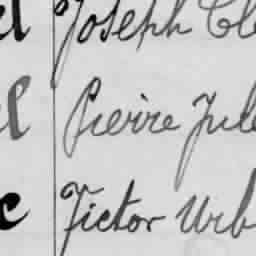 Joseph Cle
Pierre Jule
Victor Urb